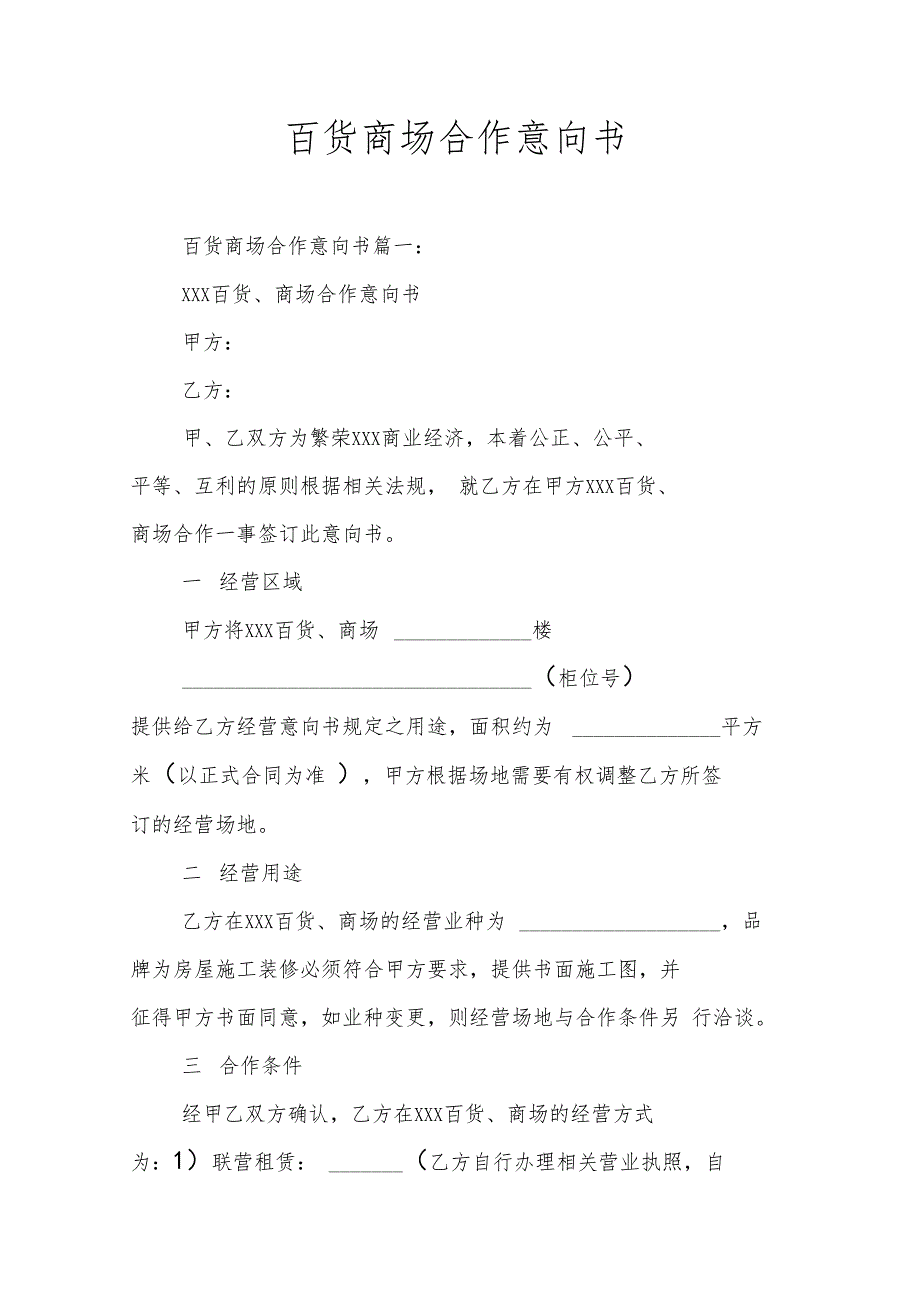 百货商场合作意向书
百货商场合作意向书篇一：
XXX百货、商场合作意向书
甲方：
乙方：
甲、乙双方为繁荣XXX商业经济，本着公正、公平、
平等、互利的原则根据相关法规， 就乙方在甲方XXX百货、
商场合作一事签订此意向书。
一 经营区域
甲方将XXX百货、商场 _____________楼
_________________________________（柜位号）
提供给乙方经营意向书规定之用途，面积约为 ______________平方
米（以正式合同为准 ），甲方根据场地需要有权调整乙方所签
订的经营场地。
二 经营用途
乙方在XXX百货、商场的经营业种为 ___________________，品
牌为房屋施工装修必须符合甲方要求，提供书面施工图，并
征得甲方书面同意，如业种变更，则经营场地与合作条件另 行洽谈。
三 合作条件
经甲乙双方确认，乙方在XXX百货、商场的经营方式
为：1）联营租赁： _______（乙方自行办理相关营业执照，自